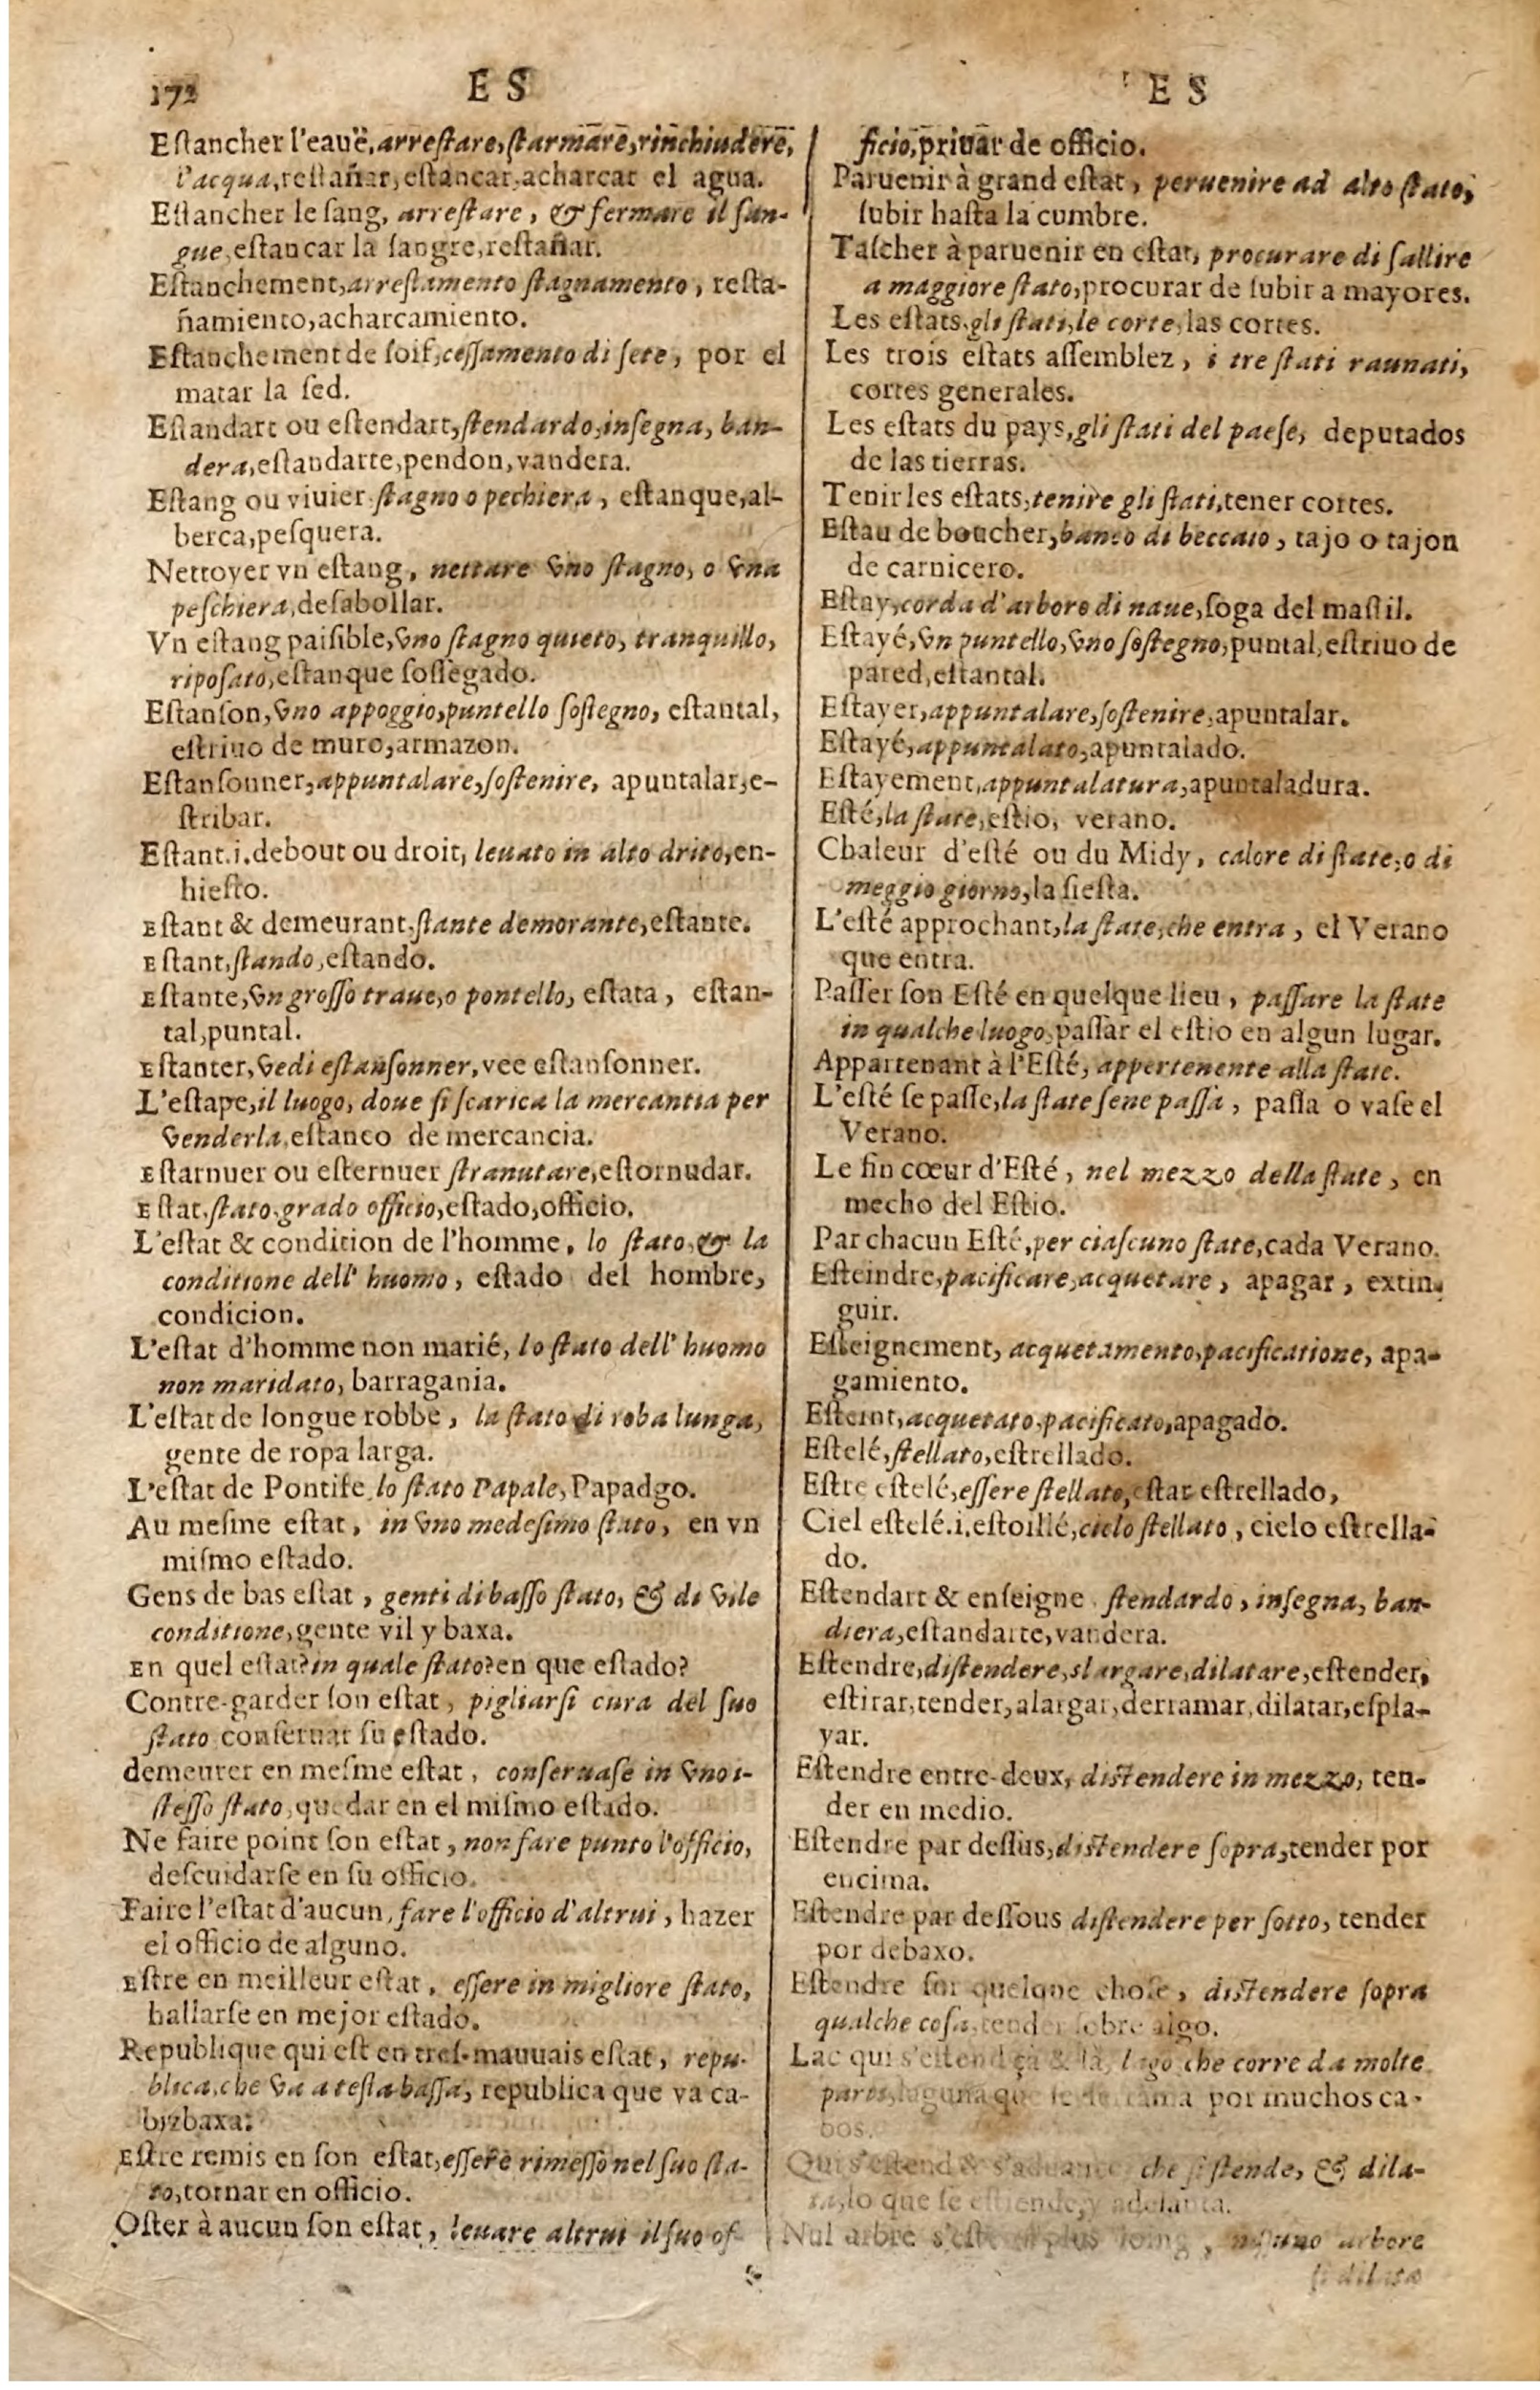 172
ES
ES
Eſtancher l'eauë, arreſtare, ſtarmare, rinchiudere,
l'acqua, reſtañar, eſtancar, acharcar el agua.
Eſtancher le ſang, arreſtare, & fermare il ſan-
gue, eſtancar la ſangre, reſtañar.
Eſtanchement, arreſtamento ſtagnamento, reſta-
ñamiento, acharcamiento.
Eſtanchement de ſoif, ceſſamento di ſete, por el
matar la ſed.
Eſtandart ou eſtendart, ſtendardo, inſegna, ban-
dera, eſtandarte, pendon, vandera.
Eſtang ou viuier, ſtagno o pechiera, eſtanque, al-
berca, peſquera.
Nettoyer vn eſtang, nettare vno ſtagno, o vna
peſchiera, deſabollar.
Vn eſtang paiſible, vno ſtagno quieto, tranquillo,
ripoſato, eſtanque ſoſſegado.
Eſtanſon, vno appoggio, puntello ſoſtegno, eſtantal,
eſtriuo de muro, armazon.
Eſtanſonner, appuntalare, ſoſtenire, apuntalar, e-
ſtribar.
Eſtant.i. debout ou droit, leuato in alto drito, en-
hieſto.
Eſtant & demeurant, ſtante demorante, eſtante.
Eſtant, ſtando, eſtando.
Eſtante, vn groſſo traue, o pontello, eſtata, eſtan-
tal, puntal.
Eſtanter, vedi eſtanſonner, vee eſtanſonner.
L'eſtape, il luogo, doue ſi ſcarica la mercantia per
venderla, eſtanco de mercancia.
Eſtarnuer ou eſternuer ſtranutare, eſtornudar.
Eſtat, ſtato, grado officio, eſtado, officio.
L'eſtat & condition de l'homme, lo ſtato, & la
conditione dell' huomo, eſtado del hombre,
condicion.
L'eſtat d'homme non marié, lo ſtato dell' huomo
non maridato, barragania.
L'eſtat de longue robbe, la ſtato di roba lunga,
gente de ropa larga.
L'eſtat de Pontife, lo ſtato Papale, Papadgo.
Au meſme eſtat, in vno medeſimo ſtato, en vn
miſmo eſtado.
Gens de bas eſtat, genti di baſſo ſtato, & di vile
conditione, gente vil y baxa.
En quel eſtat? in quale ſtato? en que eſtado?
Contre-garder ſon eſtat, pigliarſi cura del ſuo
ſtato conſeruar ſu eſtado.
demeurer en meſme eſtat, conſeruaſe in vno i-
ſteſſo ſtato, quedar en el miſmo eſtado.
Ne faire point ſon eſtat, non fare punto l'officio,
deſcuidarſe en ſu officio.
Faire l'eſtat d'aucun, fare l'officio d'altrui, hazer
el officio de alguno.
Eſtre en meilleur eſtat, eſſere in migliore ſtato,
hallarſe en mejor eſtado.
Republique qui eſt en treſ-mauuais eſtat, repu-
blica, che va a teſta baſſa, republica que va ca-
bizbaxa.
Eſtre remis en ſon eſtat, eſſere rimeſſo nel ſuo ſta-
to, tornar en officio.
Oſter à aucun ſon eſtat, leuare altrui il ſuo of-
ficio, priuar de officio.
Paruenir à grand eſtat, peruenire ad alto ſtato,
ſubir haſta la cumbre.
Taſcher à paruenir en eſtat, procurare di ſallire
a maggiore ſtato, procurar de ſubir a mayores.
Les eſtats, gli ſtati, le corte, las cortes.
Les trois eſtats aſſemblez, i tre ſtati raunati,
cortes generales.
Les eſtats du pays, gli ſtati del paeſe, deputados
de las tierras.
Tenir les eſtats, tenire gli ſtati, tener cortes.
Eſtau de boucher, banco di beccaio, tajo o tajon
de carnicero.
Eſtay, corda d'arbore di naue, ſoga del maſtil.
Eſtayé, vn puntello, vno ſoſtegno, puntal, eſtriuo de
pared, eſtantal.
Eſtayer, appuntalare, ſoſtenire, apuntalar.
Eſtayé, appuntalato, apuntalado.
Eſtayement, appuntalatura, apuntaladura.
Eſté, la ſtate, eſtio, verano.
Chaleur d'eſté ou du Midy, calore di ſtate, o di
meggio giorno, la ſieſta.
L'eſté approchant, la ſtate, che entra, el Verano
que entra.
Paſſer ſon Eſté en quelque lieu, paſſare la ſtate
in qualche luogo, paſſar el eſtio en algun lugar.
Appartenant à l'Eſté, appertenente alla ſtate.
L'eſté ſe paſſe, la ſtate ſene paſſa, paſſa o vaſe el
Verano.
Le fin cœur d'Eſté, nel mezzo della ſtate, en
mecho del Eſtio.
Par chacun Eſté, per ciaſcuno ſtate, cada Verano.
Eſteindre, pacificare, acquetare, apagar, extin-
guir.
Eſteignement, acquetamento, pacificatione, apa-
gamiento.
Eſteint, acquetato, pacificato, apagado.
Eſtelé, ſtellato, eſtrellado.
Eſtre eſtelé, eſſere ſtellato, eſtar eſtrellado,
Ciel eſtelé.i. eſtoillé, cielo ſtellato, cielo eſtrella-
do.
Eſtendart & enſeigne, ſtendardo, inſegna, ban-
diera, eſtandarte, vandera.
Eſtendre, diſtendere, slargare, dilatare, eſtender,
eſtirar, tender, alargar, derramar, dilatar, eſpla-
yar.
Eſtendre entre-deux, diſtendere in mezzo, ten-
der en medio.
Eſtendre par deſſus, diſtendere ſopra, tender por
encima.
Eſtendre par deſſous diſtendere per ſotto, tender
por debaxo.
Eſtendre ſur quelque choſe, diſtendere ſopra
qualche coſa, tender ſobre algo.
Lac qui s'eſtend çà & là, lago che corre da molte
parti, laguna que ſe derrama por muchos ca-
bos.
Qui s'eſtend & s'aduance, che ſi ſtende, & dila-
ta, lo que ſe eſtiende, y adelanta.
Nul arbre s'eſtend plus loing, niſſuno arbore
ſi dilata